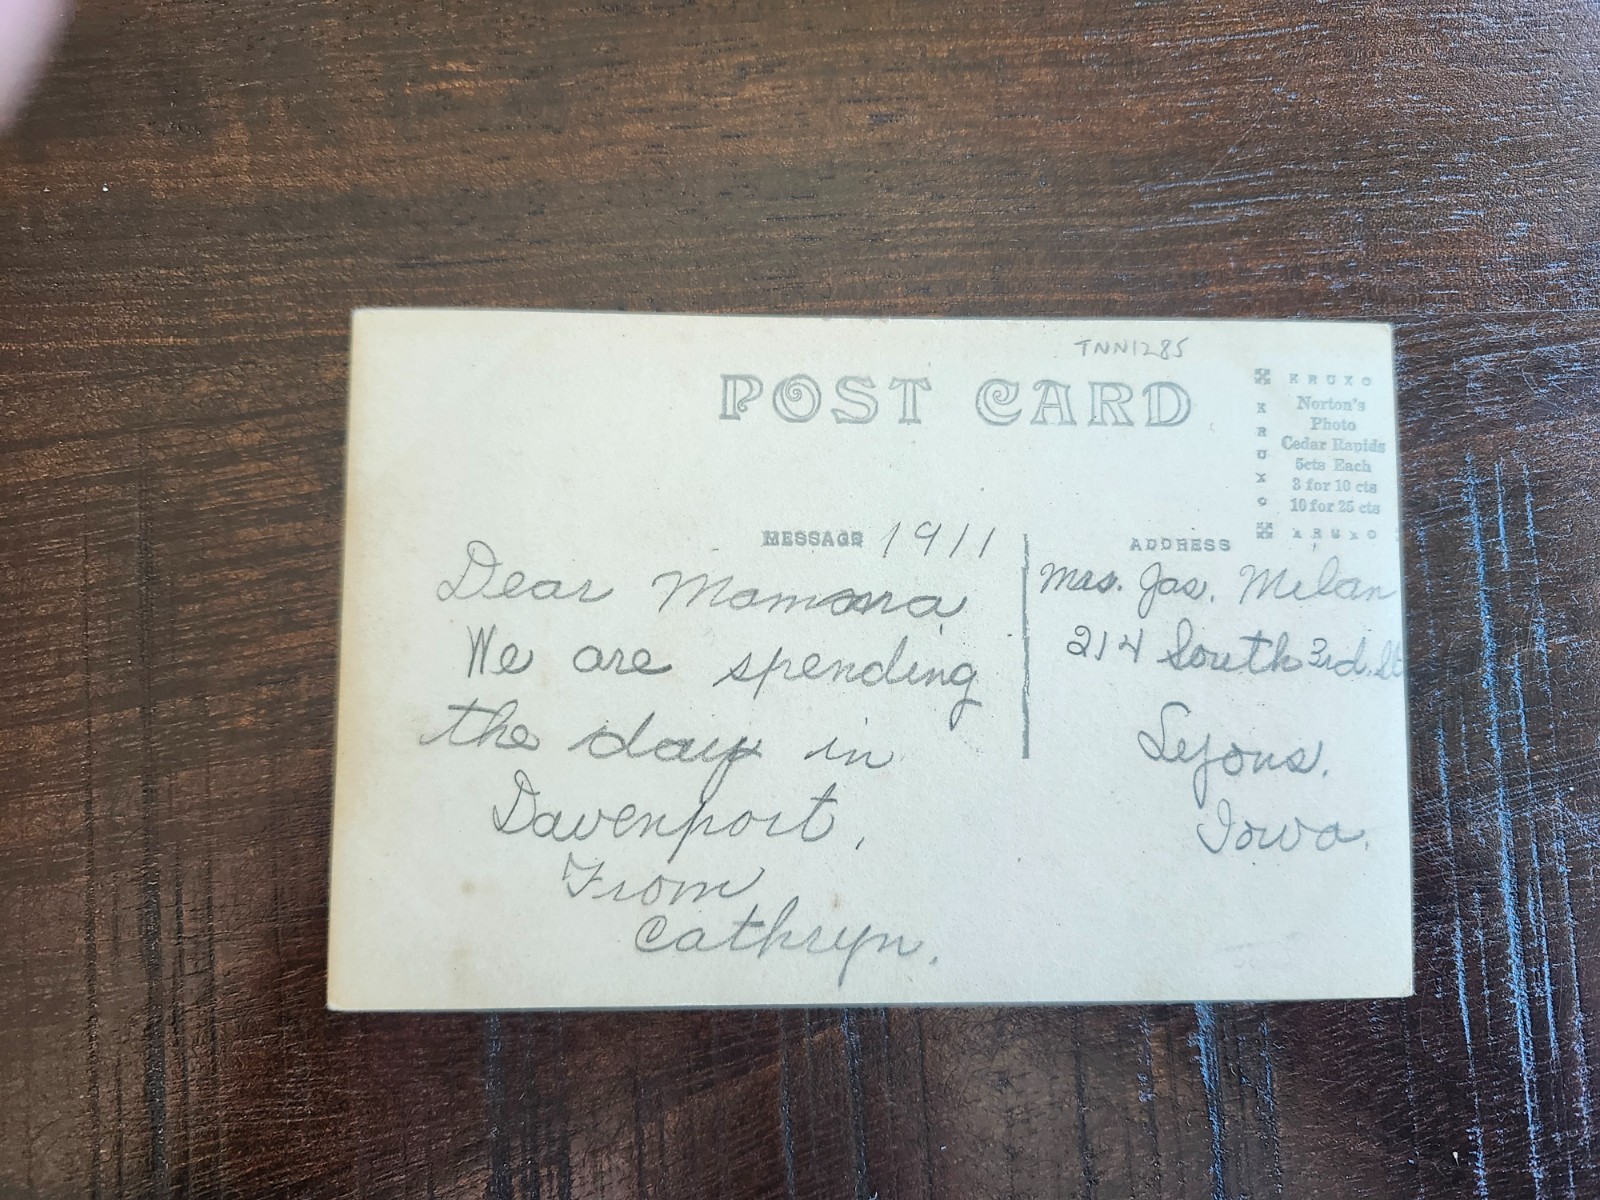 TNN1285
POST CARD
KRUXO
KRUXO
Norton's
Photo
Cedar Rapids
5cts Each
3 for 10 cts
10 for 25 cts
KRUXO
MESSAGE 1911
Dear Mamma
We are spending
the day in
Davenport.
From
Cathryn.
ADDRESS
Mrs. Jas. Milan
214 South 3rd. St
Lyons.
Iowa.